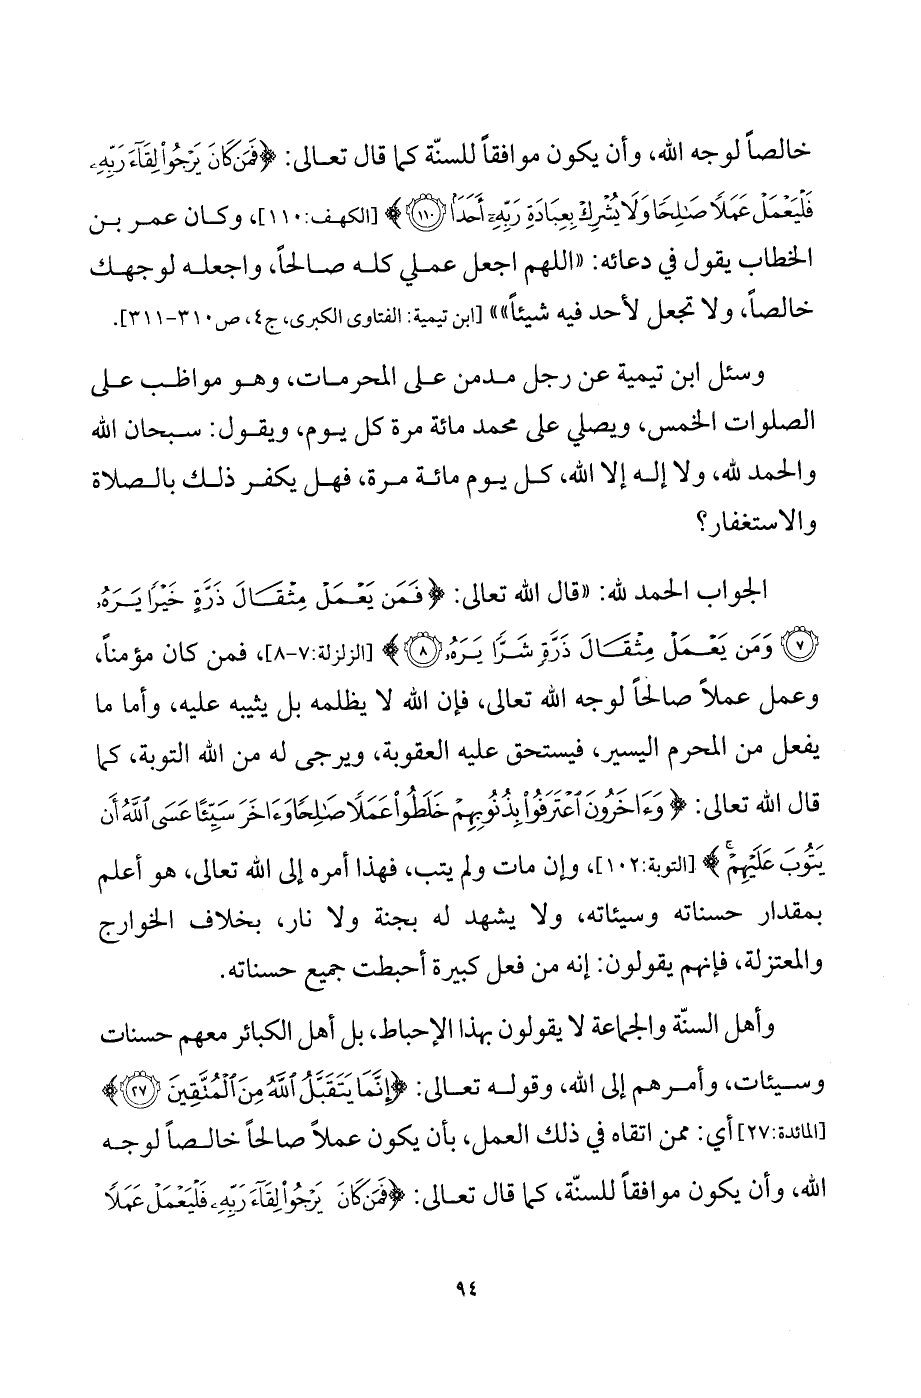 خالصاً لوجه الله، وأن يكون موافقاً للسنّة كما قال تعالى: ﴿فَمَن كَانَ يَرْجُوا۟ لِقَآءَ رَبِّهِۦ
فَلْيَعْمَلْ عَمَلًا صَـٰلِحًا وَلَا يُشْرِكْ بِعِبَادَةِ رَبِّهِۦٓ أَحَدًۢا ۝١١٠﴾ [الكهف:١١٠]، وكان عمر بن
الخطاب يقول في دعائه: «اللهم اجعل عملي كله صالحاً، واجعله لوجهك
خالصاً، ولا تجعل لأحد فيه شيئاً»» [ابن تيمية: الفتاوى الكبرى، ج٤، ص٣١٠-٣١١].
وسئل ابن تيمية عن رجل مدمن على المحرمات، وهو مواظب على
الصلوات الخمس، ويصلي على محمد مائة مرة كل يوم، ويقول: سبحان الله
والحمد لله، ولا إله إلا الله، كل يوم مائة مرة، فهل يكفر ذلك بالصلاة
والاستغفار؟
الجواب الحمد لله: «قال الله تعالى: ﴿فَمَن يَعْمَلْ مِثْقَالَ ذَرَّةٍ خَيْرًا يَرَهُۥ
۝٧ وَمَن يَعْمَلْ مِثْقَالَ ذَرَّةٍ شَرًّا يَرَهُۥ ۝٨﴾ [الزلزلة:٧-٨]، فمن كان مؤمناً،
وعمل عملاً صالحاً لوجه الله تعالى، فإن الله لا يظلمه بل يثيبه عليه، وأما ما
يفعل من المحرم اليسير، فيستحق عليه العقوبة، ويرجى له من الله التوبة، كما
قال الله تعالى: ﴿وَءَاخَرُونَ ٱعْتَرَفُوا۟ بِذُنُوبِهِمْ خَلَطُوا۟ عَمَلًا صَـٰلِحًا وَءَاخَرَ سَيِّئًا عَسَى ٱللَّهُ أَن
يَتُوبَ عَلَيْهِمْ ۚ﴾ [التوبة:١٠٢]، وإن مات ولم يتب، فهذا أمره إلى الله تعالى، هو أعلم
بمقدار حسناته وسيئاته، ولا يشهد له بجنة ولا نار، بخلاف الخوارج
والمعتزلة، فإنهم يقولون: إنه من فعل كبيرة أحبطت جميع حسناته.
وأهل السنّة والجماعة لا يقولون بهذا الإحباط، بل أهل الكبائر معهم حسنات
وسيئات، وأمرهم إلى الله، وقوله تعالى: ﴿إِنَّمَا يَتَقَبَّلُ ٱللَّهُ مِنَ ٱلْمُتَّقِينَ ۝٢٧﴾
[المائدة:٢٧] أي: ممن اتقاه في ذلك العمل، بأن يكون عملاً صالحاً خالصاً لوجه
الله، وأن يكون موافقاً للسنّة، كما قال تعالى: ﴿فَمَن كَانَ يَرْجُوا۟ لِقَآءَ رَبِّهِۦ فَلْيَعْمَلْ عَمَلًا
٩٤